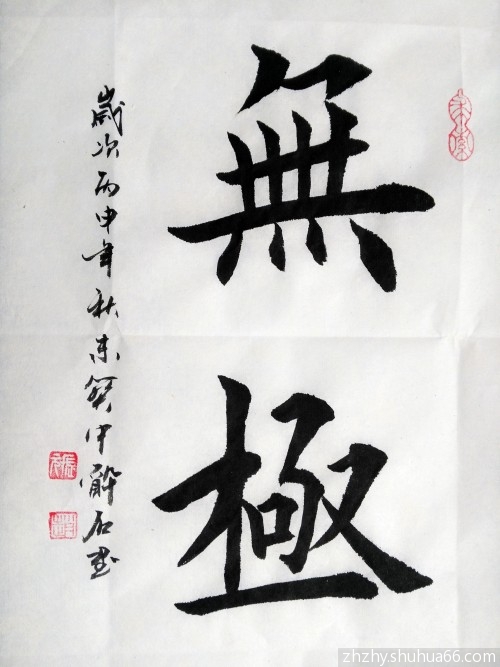 無極
歲次丙申年秋末
zhzhy.shuhua66.com